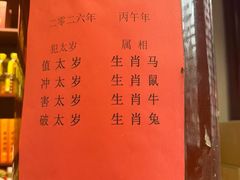 二零二六年 丙午年
犯太岁 属相
值太岁 生肖马
冲太岁 生肖鼠
害太岁 生肖牛
破太岁 生肖兔